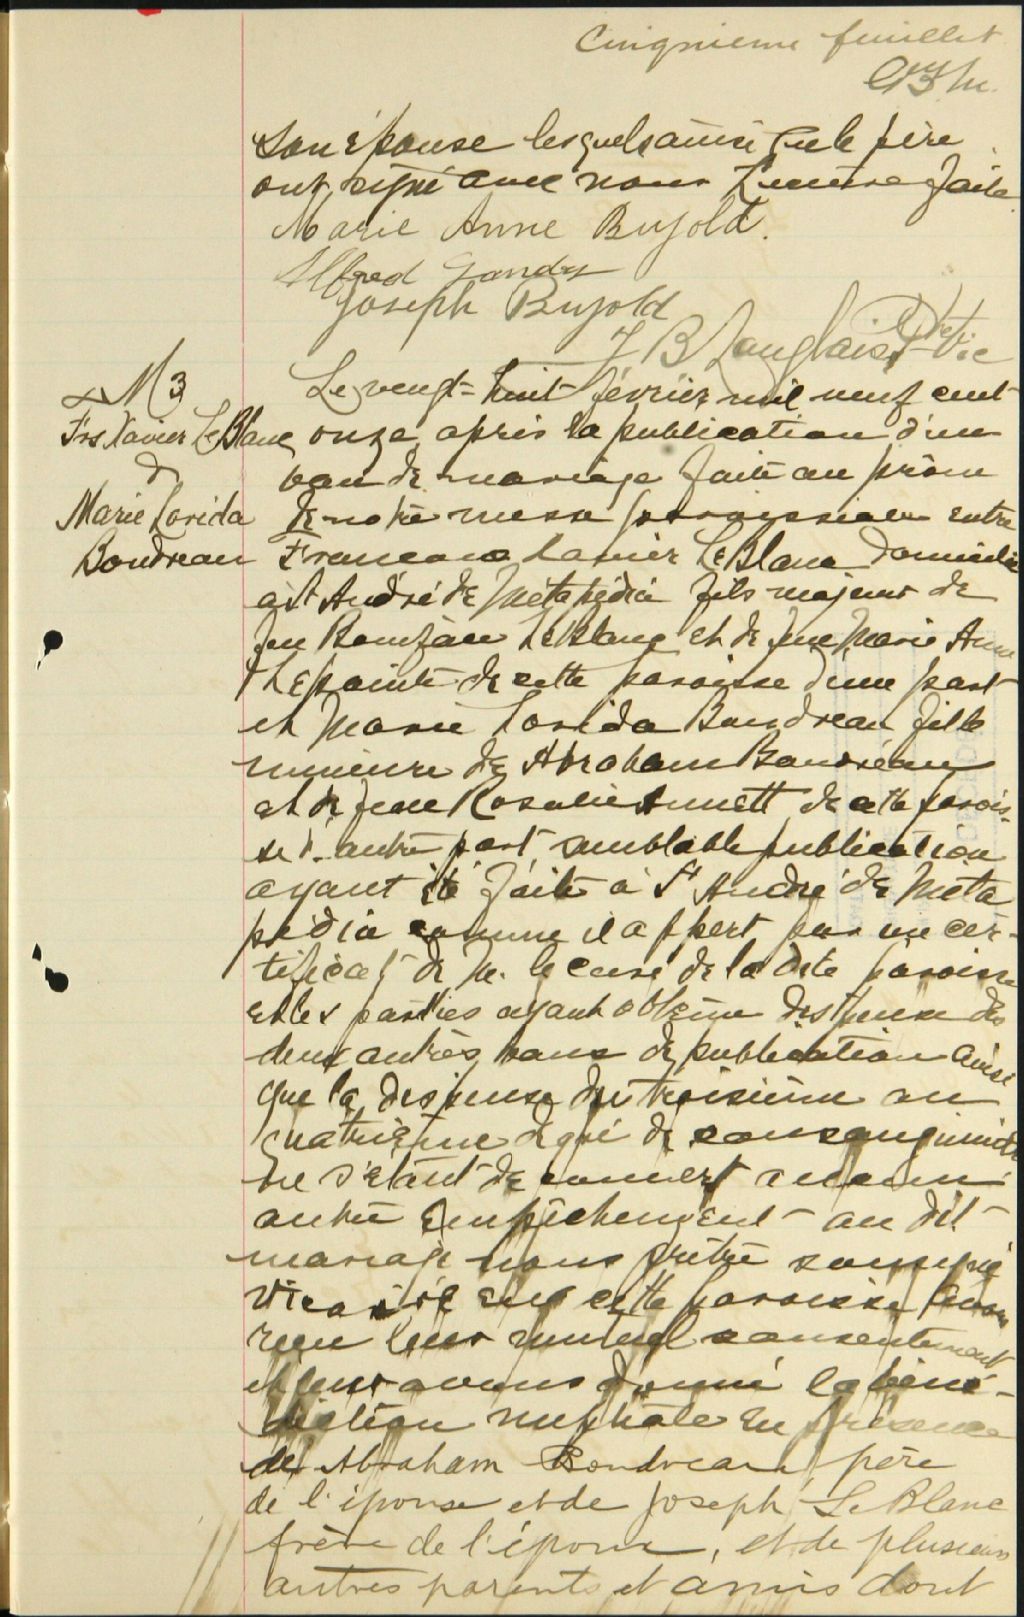 Cinquieme feuillet
son épouse lesquels ainsi que le père
ont signé avec nous Lecture faite.
Marie Anne Bujold.
Alfred Landry
Joseph Bujold
J B Langlais Ptre Vic
M 3
Frs Xavier LeBlanc
&
Marie Lorida
Boudreau
Le vingt-huit février mil neuf cent
onze après la publication d'un
ban de mariage faite au prône
de notre messe paroissiale entre
Francois Xavier LeBlanc domicilié
à St André de Métapédia fils majeur de
feu Bonifàce LeBlanc et de feue Marie Anne
Lepointe de cette paroisse d'une part
et Marie Lorida Boudreau fille
mineure de Abraham Boudreau
et de feue Rosalie Annett de cette parois-
se d'autre part semblable publication
ayant été faite à St André de Méta
pédia comme il appert par un cer-
tificat de M. le curé de la dite paroisse
et les parties ayant obtenu dispense des
deux autres bans de publication ainsi
que la dispense du troisième au
quatrième degré de consanguinité
ne s'étant découvert aucun
autre empêchement au dit
mariage nous prêtre soussigné
vicaire de cette paroisse avons
reçu leur mutuel consentement
et leur avons donné la béné-
diction nuptiale en présence
de Abraham Boudreau père
de l'épouse et de Joseph LeBlanc
frère de l'époux, et de plusieurs
autres parents et amis dont